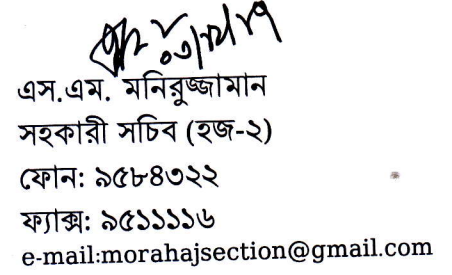 এস.এম. মনিরুজ্জামান
সহকারী সচিব (হজ-২)
ফোন: ৯৫৮৪৩২২
ফ্যাক্স: ৯৫১১১১৬
e-mail:morahajsection@gmail.com